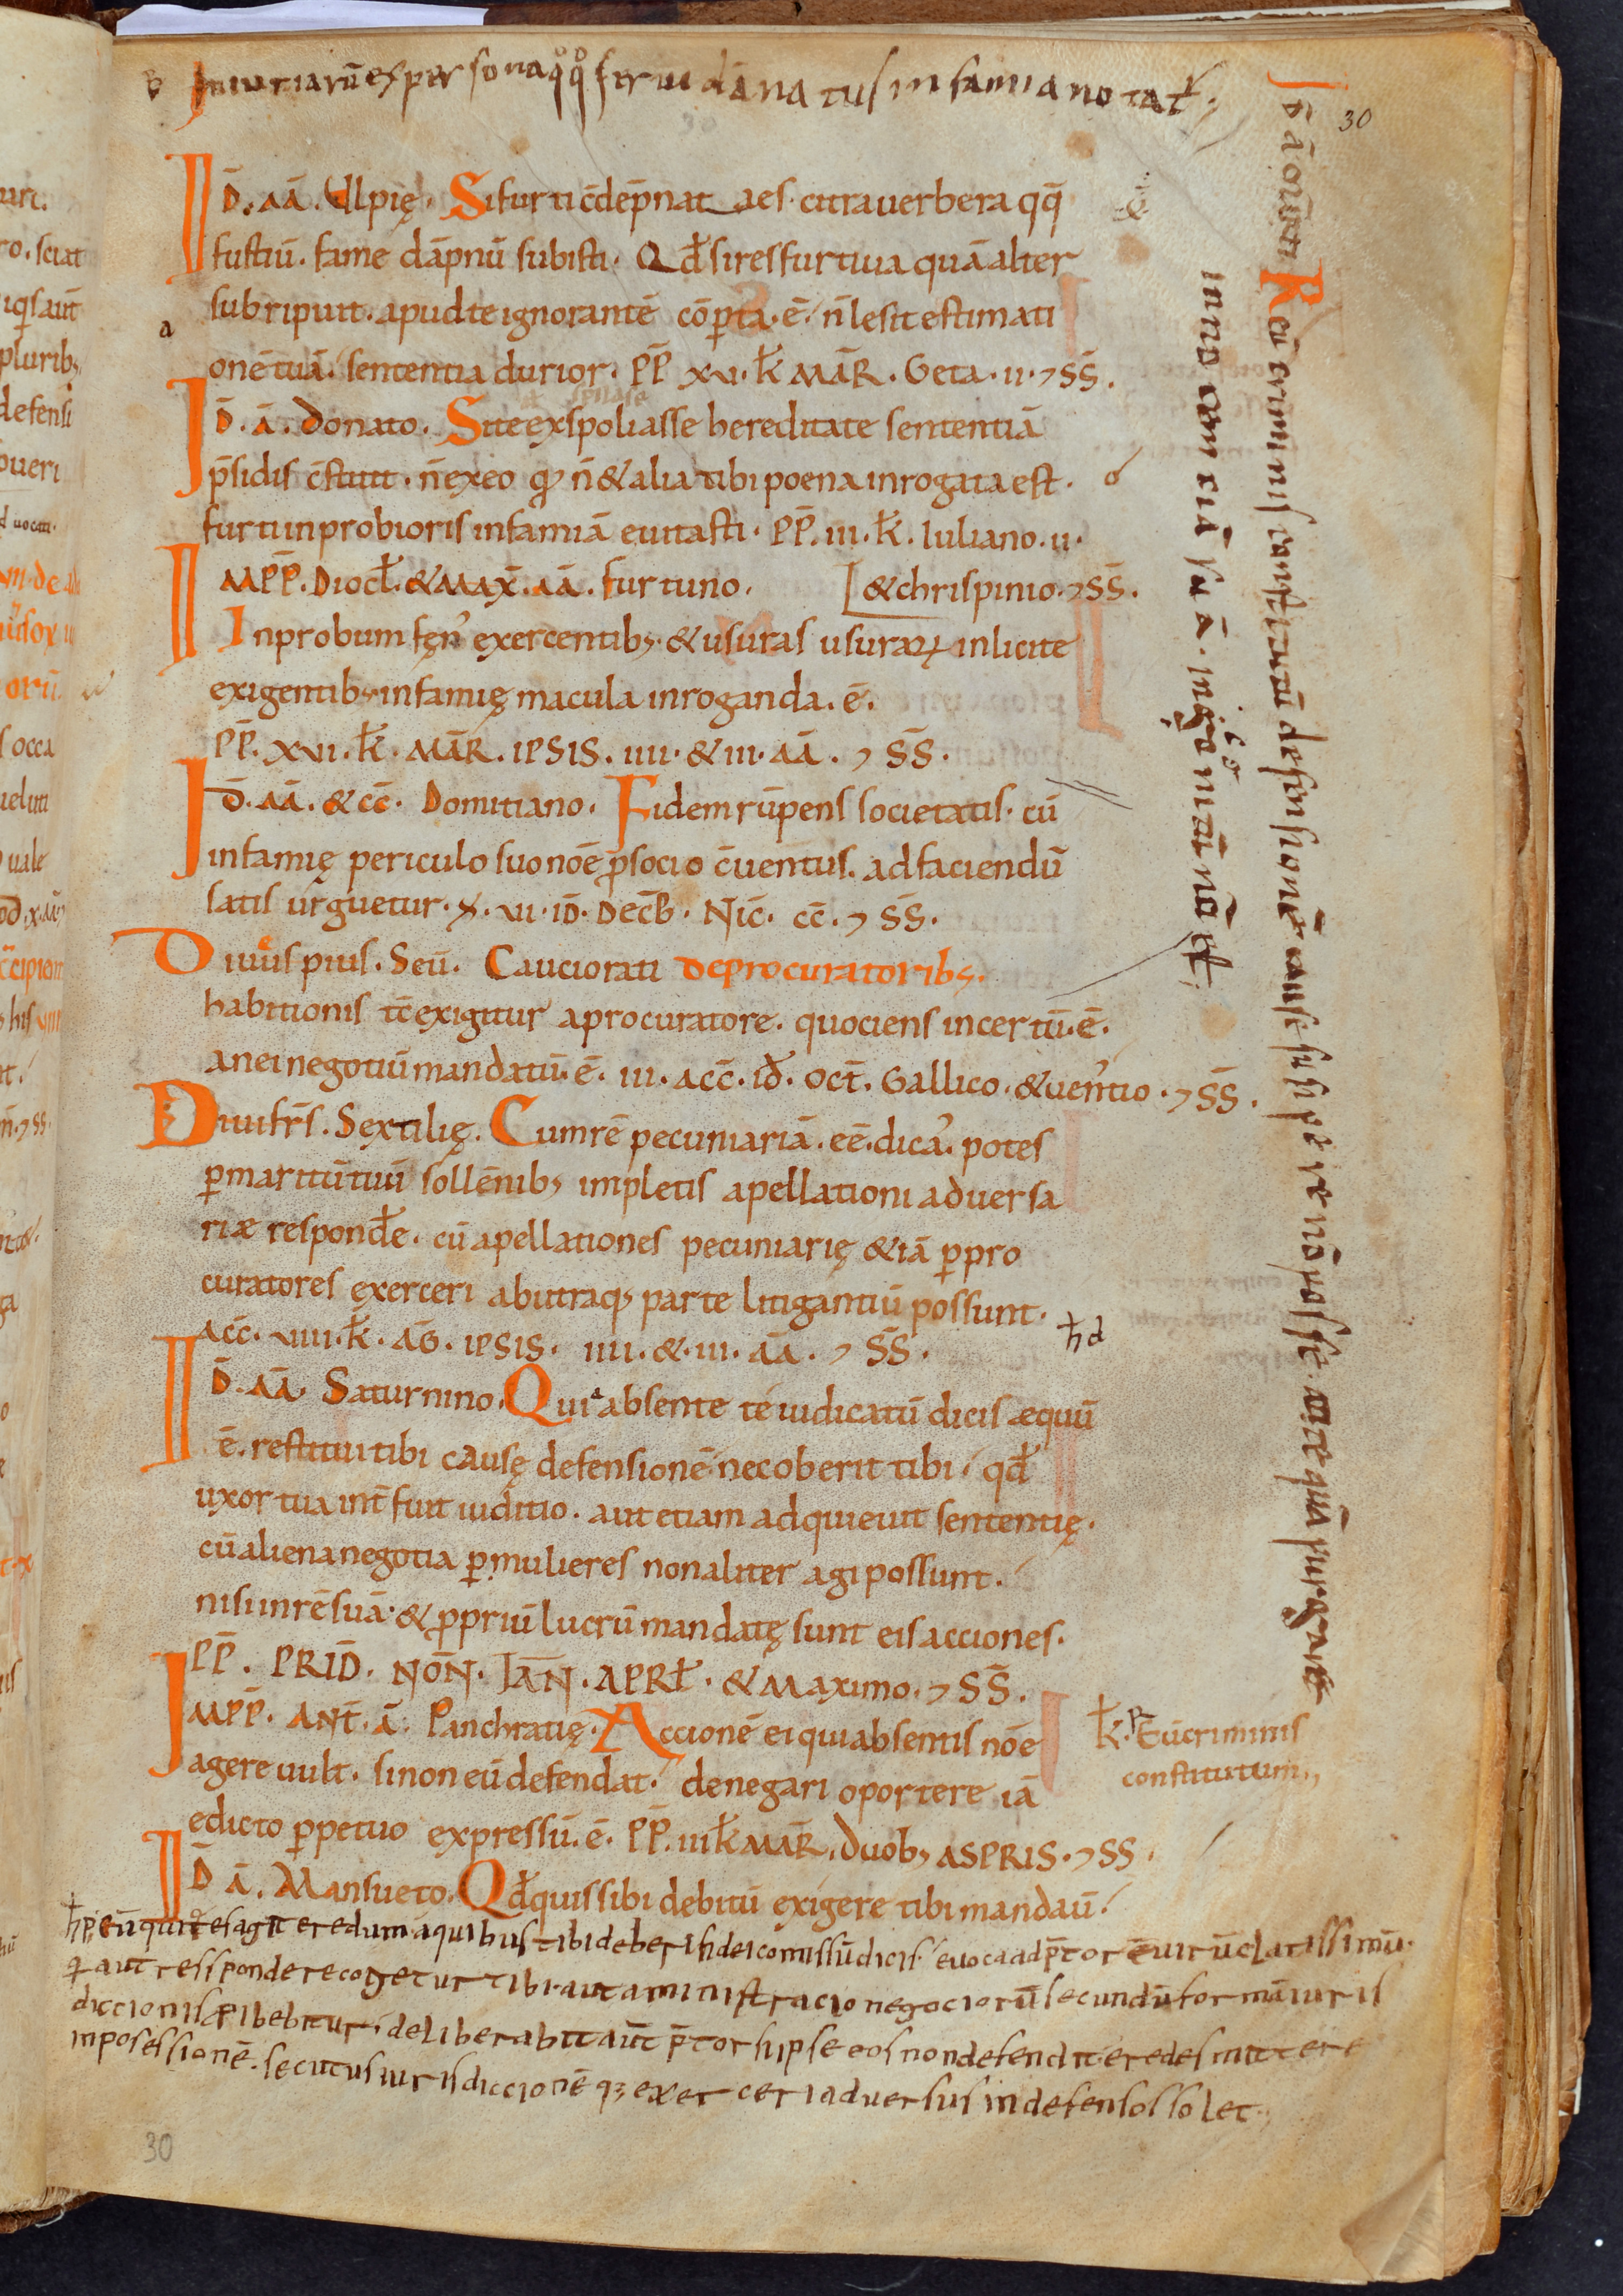 Iniuriarū ex persona qͦqͦ serui dānatus infamia notat̄ʳ;
30
ID̄. AĀ. Ulpię. Si furti c̄dēpnata es. citra uerbera qq̄
fustiū. fame dāpnū subisti. Qd̄ si res furtiua quā alter
subripuit. apud te ignorantē cōperta. ē. n̄ lesit estimati
a
onē tuā. sententia durior. PP̄ XVI. K̄ MĀR. Geta. II. ⁊ SS̄.
ID̄. Ā. Donato. Si te exspoliasse hereditate sententiā
p̄sidis c̄stitit. n̄ ex eo qđ n̄ & alia tibi poena inrogata est.
furti inprobioris infamiā euitasti. PP̄. III. K̄. Iuliano. II.
IMPP̄. Diocł. & MAX̄. AĀ. furtuno. [& chrispinio. ⁊ SS̄.
Inprobum fęn᾽ exercentibȝ. & usuras usuraꝝ inlicite
exigentibȝ infamię macula inroganda. ē.
PP̄. XVI. K̄. MĀR. IPSIS. IIII. & III. AĀ. ⁊ SS̄.
ID̄. AĀ. & CC̄. Domitiano. Fidem rūpens societatis. cū
infamię periculo suo nōe ꝓ socio c̄uentus. ad faciendū
satis urguetur. S. VI. ID̄. DEC̄B. NIC̄. CC̄. ⁊ SS̄.
Diuus pius. Seū. Cauciorati de procuratoribȝ.
habitionis tc̄ exigitur a procuratore. quociens incertū. ē.
an ei negotiū mandatū. ē. III. ACC̄. ID̄. OCT̄. Gallico. & uen᾽tio. ⁊ SS̄.
Diui fr̄s. Sextilię. Cum rē pecuniariā. eē. dica᾽. potes
ꝑ maritū tuū sollēnibȝ impletis apellationi aduersa
riæ respondēe. cū apellationes pecuniarię & iā ꝑ pro
curatores exerceri ab utraqȝ parte litigantiū possunt.
ACC̄. VIIII. K̄. AḠ. IPSIS. IIII. & III. AĀ. ⁊ SS̄.
h̄d
ID̄. AĀ. Saturnino. Quia absente te iudicatū dicis æquū
ē. restitui tibi causę defensionē. nec oberit tibi. qd̄
uxor tua int̄fuit iuditio. aut etiam adquieuit sententię.
cū aliena negotia ꝑ mulieres non aliter agi possunt.
nisi in rē suā. & ꝓpriū lucrū mandatę sunt eis acciones.
PP̄. PRID̄. NON̄. IAN̄. APRŁ. & Maximo. ⁊ SS̄.
IMPP̄. ANT̄. Ā. Panchratię. Accionē ei qui absentis nōe
agere uult. si non eū defendat. denegari oportere iā
edicto ꝑpetuo expressū. ē. PP̄. III K̄ MAR̄. Duobȝ ASPRIS. ⁊ SS.
ID̄ Ā. Mansueto. Qd̄ quis sibi debitū exigere tibi mandaū.
K̄. Eū criminis
constitutum
h̄p, cū quires agit eredum a quibus tibi deberi fideicomissū dicis. euoca ad p̄torē uirū clarissimū.
q̄ aut respondere cogetur tibi. aut aministracio negociorū secundū formā iuris
diccionis p̄ibebitur. deliberabit aūt p̄tor si ipse eos non defendit. eredes mittere
in posessionē. secutus iurisdiccionē qȝ exerceri aduersus indefensos solet.
Reū criminis constitutū defensionē causę suscipere nō posse. anteqūā purgauerit
innocenciā suā. incogn̄itū nō est.
30